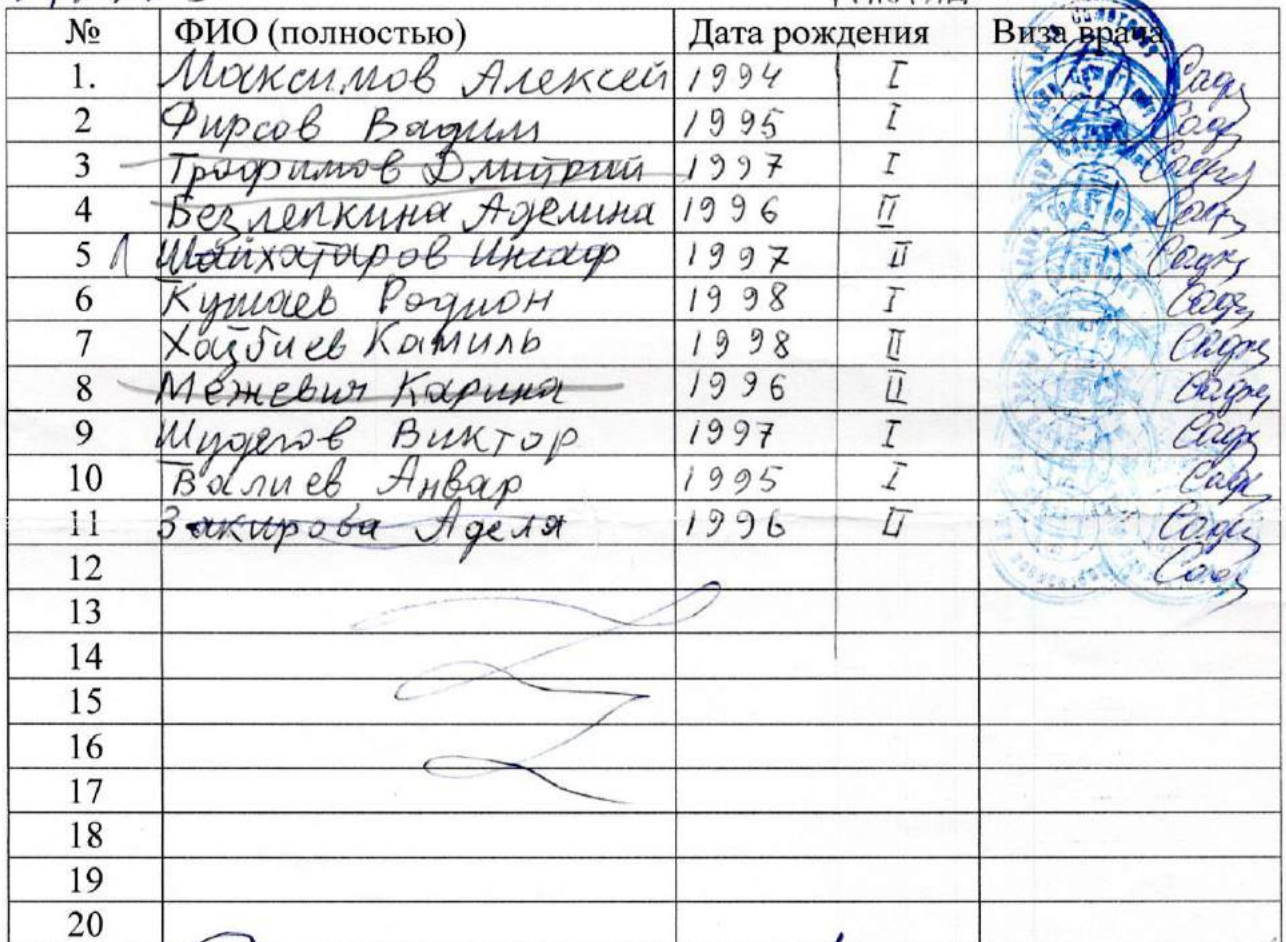 № ФИО (полностью) Дата рождения Виза врача
1. Максимов Алексей 1994 I
2 Фирсов Вадим 1995 I
3 Трофимов Дмитрий 1997 I
4 Безлепкина Аделина 1996 II
5 Шайхатаров Инсаф 1997 II
6 Кушаев Родион 1998 I
7 Хазбиев Камиль 1998 II
8 Межевич Карина 1996 II
9 Шудегов Виктор 1997 I
10 Валиев Анвар 1995 I
11 Закирова Аделя 1996 II
12
13
14
15
16
17
18
19
20